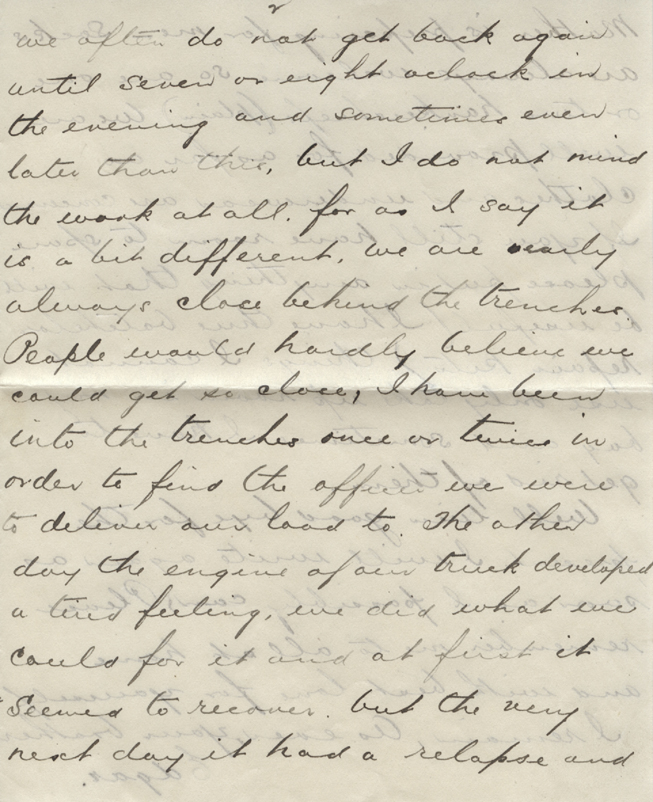 2
we often do not get back again
until seven or eight oclock in
the evening and sometimes even
later than this, but I do not mind
the work at all. for as I say it
is a bit different, we are nearly
always close behind the trenches.
People would hardly believe we
could get so close, I have been
into the trenches once or twice in
order to find the officer we were
to deliver our load to. The other
day the engine of our truck developed
a tired feeling, we did what we
could for it and at first it
seemed to recover. but the very
next day it had a relapse and